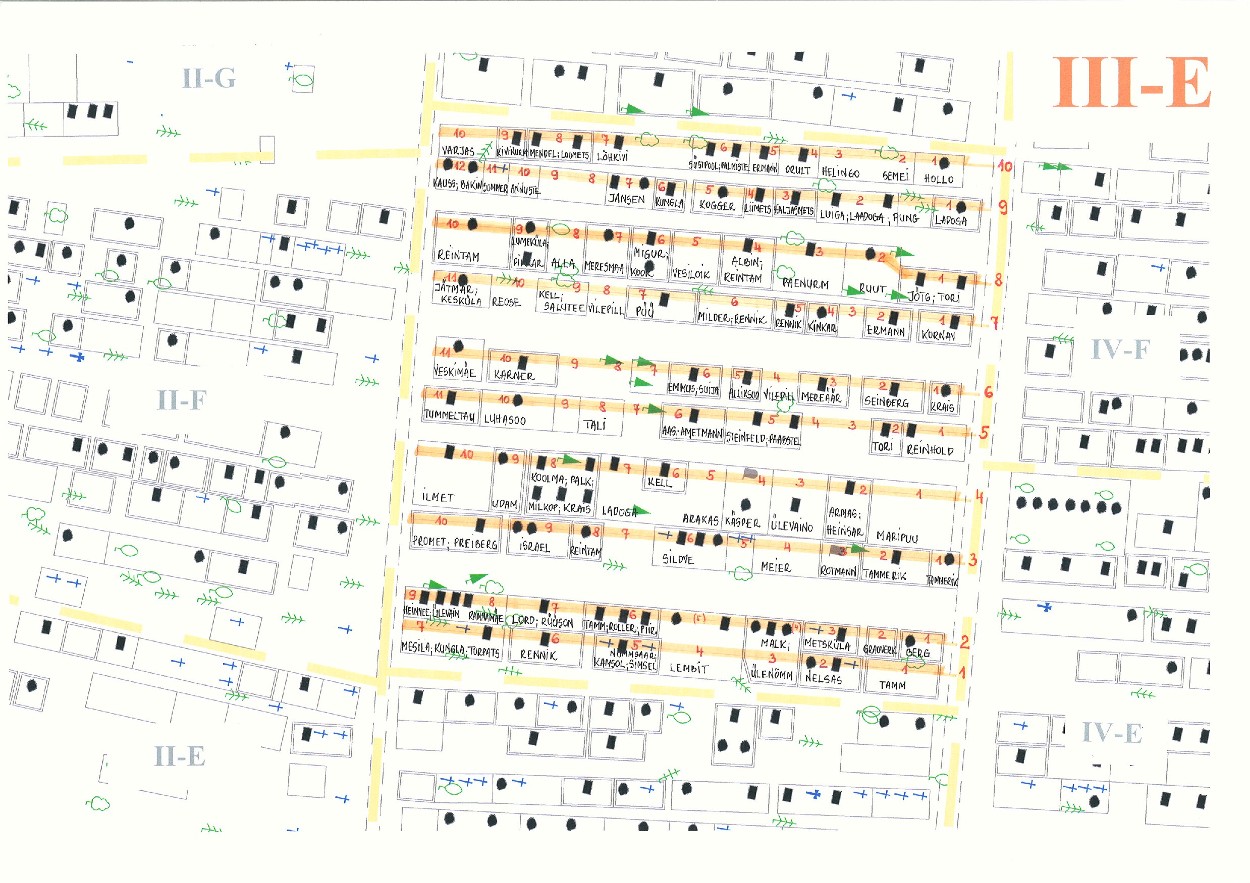 II-G
III-E
10 9 8 7 6 5 4 3 2 1 10
VARJAS MENDEL; LOOMETS LÕHKIVI ERMANN ORULT HELINGO SEMEI HOLLO
12 11 10 9 8 7 6 5 4 3 2 1 9
KAUSS; BAKIN SOMMER ANNUSTE JANSEN KUNGLA KOGGER LUIGA; LAADOGA; PUNG LADOGA
10 9 8 7 6 5 4 3 2 1 8
REINTAM ALLA MERESMAA MIGUR; KOOK VESILOIK ALBIN; REINTAM PAENURM RUUT JÕTG; TORI
11 10 9 8 7 6 5 4 3 2 1 7
JÄTMAR; KESKÜLA REOSE KELL; SALUTEE VILEPILL PÜÜ MILDER; RENNIK RENNIK KINKAR ERMANN KORNAV
IV-F
11 10 9 8 7 6 5 4 3 2 1 6
VESKIMÄE KARNER VILEPILL MEREÄÄR SEINBERG KRAIS
II-F
11 10 9 8 7 6 5 4 3 2 1 5
TUMMELTAU LUHASOO TALI AAS; AMETMANN STEINFELD; PAABSTEL TORI REINHOLD
10 9 8 7 6 5 4 3 2 1 4
ILMET UDAM KOOLMA; PALK; MILKOP; KRAIS LADOGA KELL ARAKAS KASPER ÜLEVAINO ARMAS; HEINSAR MARIPUU
10 9 8 7 6 5 4 3 2 1 3
PROMET; PREIBERG ISRAEL REINTAM SILDVE MEIER ROTMANN TAMMERIK TAMMERIK
9 8 7 6 (5) 3 2 1 2
LORD; RÜÜSON TAMM; ROLLER; PIIR MALK; METSKÜLA BERG
7 6 5 4 3 2 1 1
MESILA; KUNGLA; TORPATS RENNIK NÕMMSAAR; KANSOL; SIMSEL LEMBIT ÜLENÕMM NELSAS TAMM
II-E
IV-E